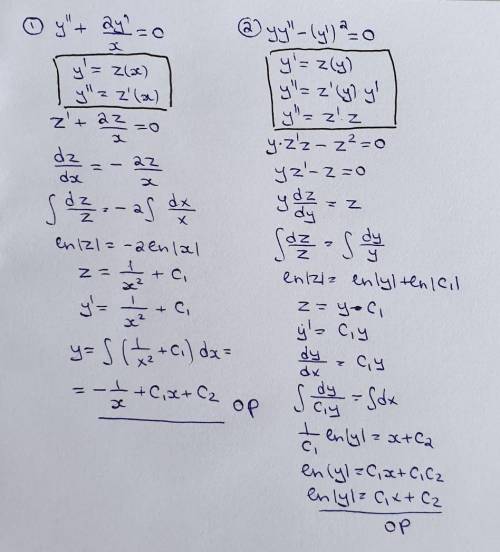 ① y'' + 2y'/x = 0
y' = z(x)
y'' = z'(x)
z' + 2z/x = 0
dz/dx = - 2z/x
∫ dz/z = -2∫ dx/x
ln|z| = -2ln|x|
z = 1/x² + C₁
y' = 1/x² + C₁
y = ∫ (1/x² + C₁) dx =
= - 1/x + C₁x + C₂ OP
② yy'' - (y')² = 0
y' = z(y)
y'' = z'(y) y'
y'' = z' · z
y · z'z - z² = 0
yz' - z = 0
y dz/dy = z
∫ dz/z = ∫ dy/y
ln|z| = ln|y| + ln|C₁|
z = y · C₁
y' = C₁y
dy/dx = C₁y
∫ dy/C₁y = ∫dx
1/C₁ ln|y| = x + C₂
ln|y| = C₁x + C₁C₂
ln|y| = C₁x + C₂
OP